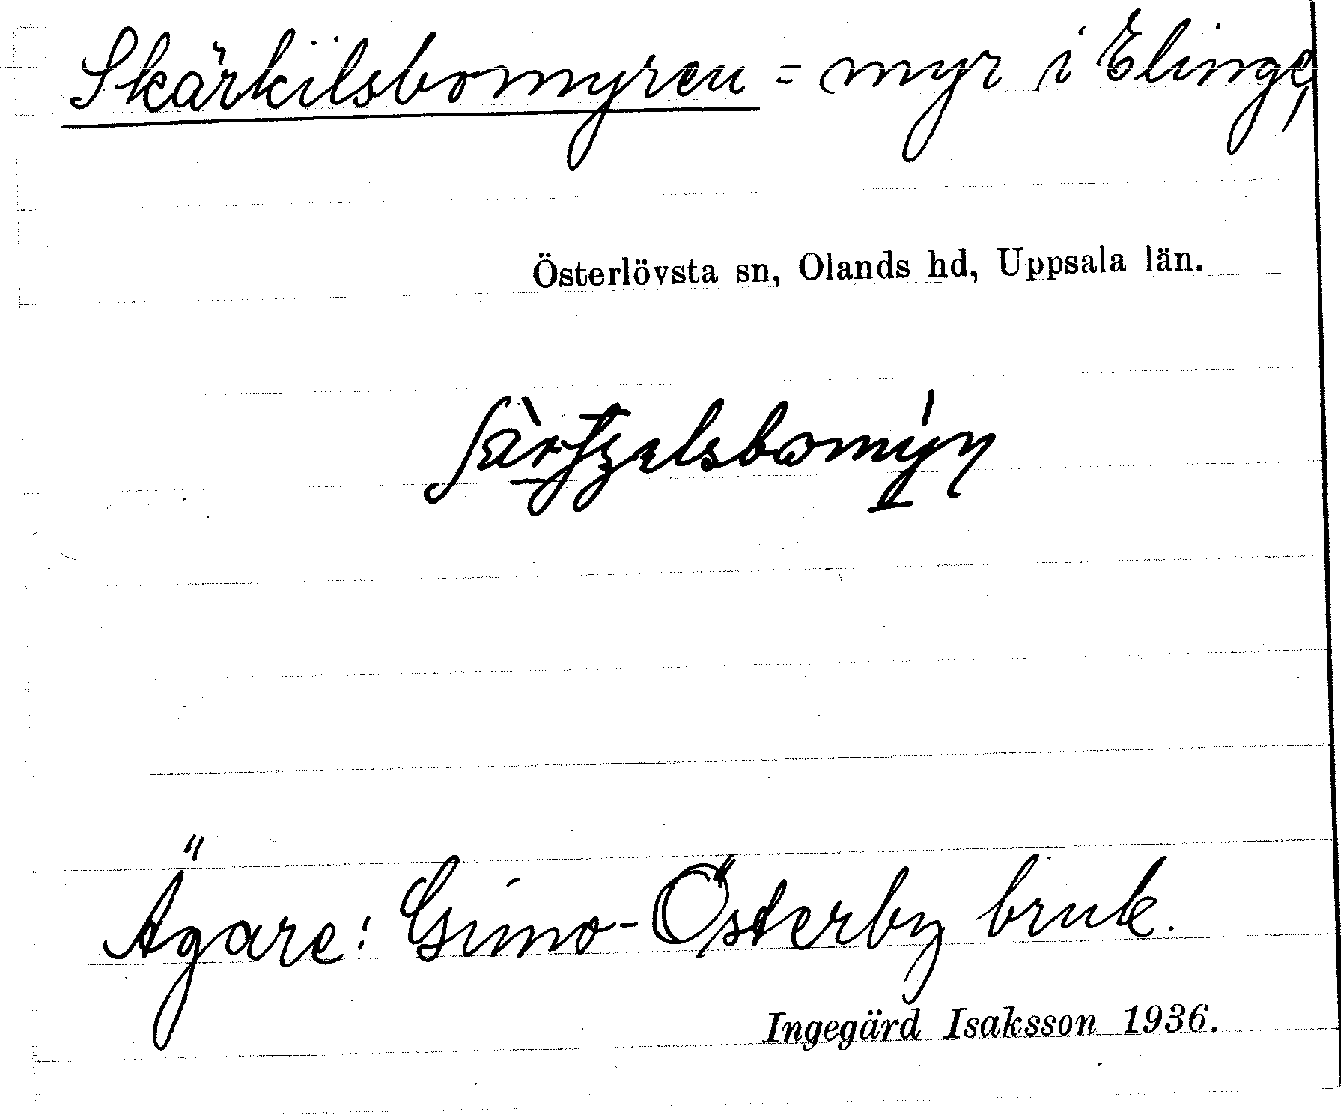 Skärkilsbomyren = myr i Elinge,
Österlövsta sn, Olands hd, Uppsala län.
Ägare: Gimo-Österby bruk.
Ingegärd Isaksson 1936.